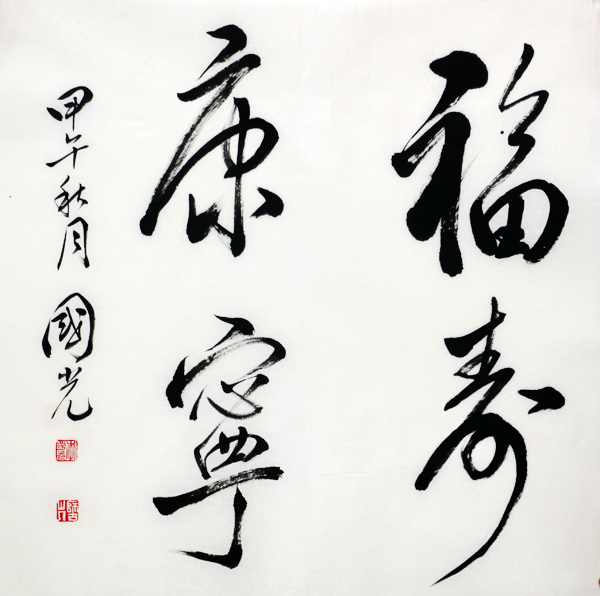 福寿
康寧
甲午秋月 國光